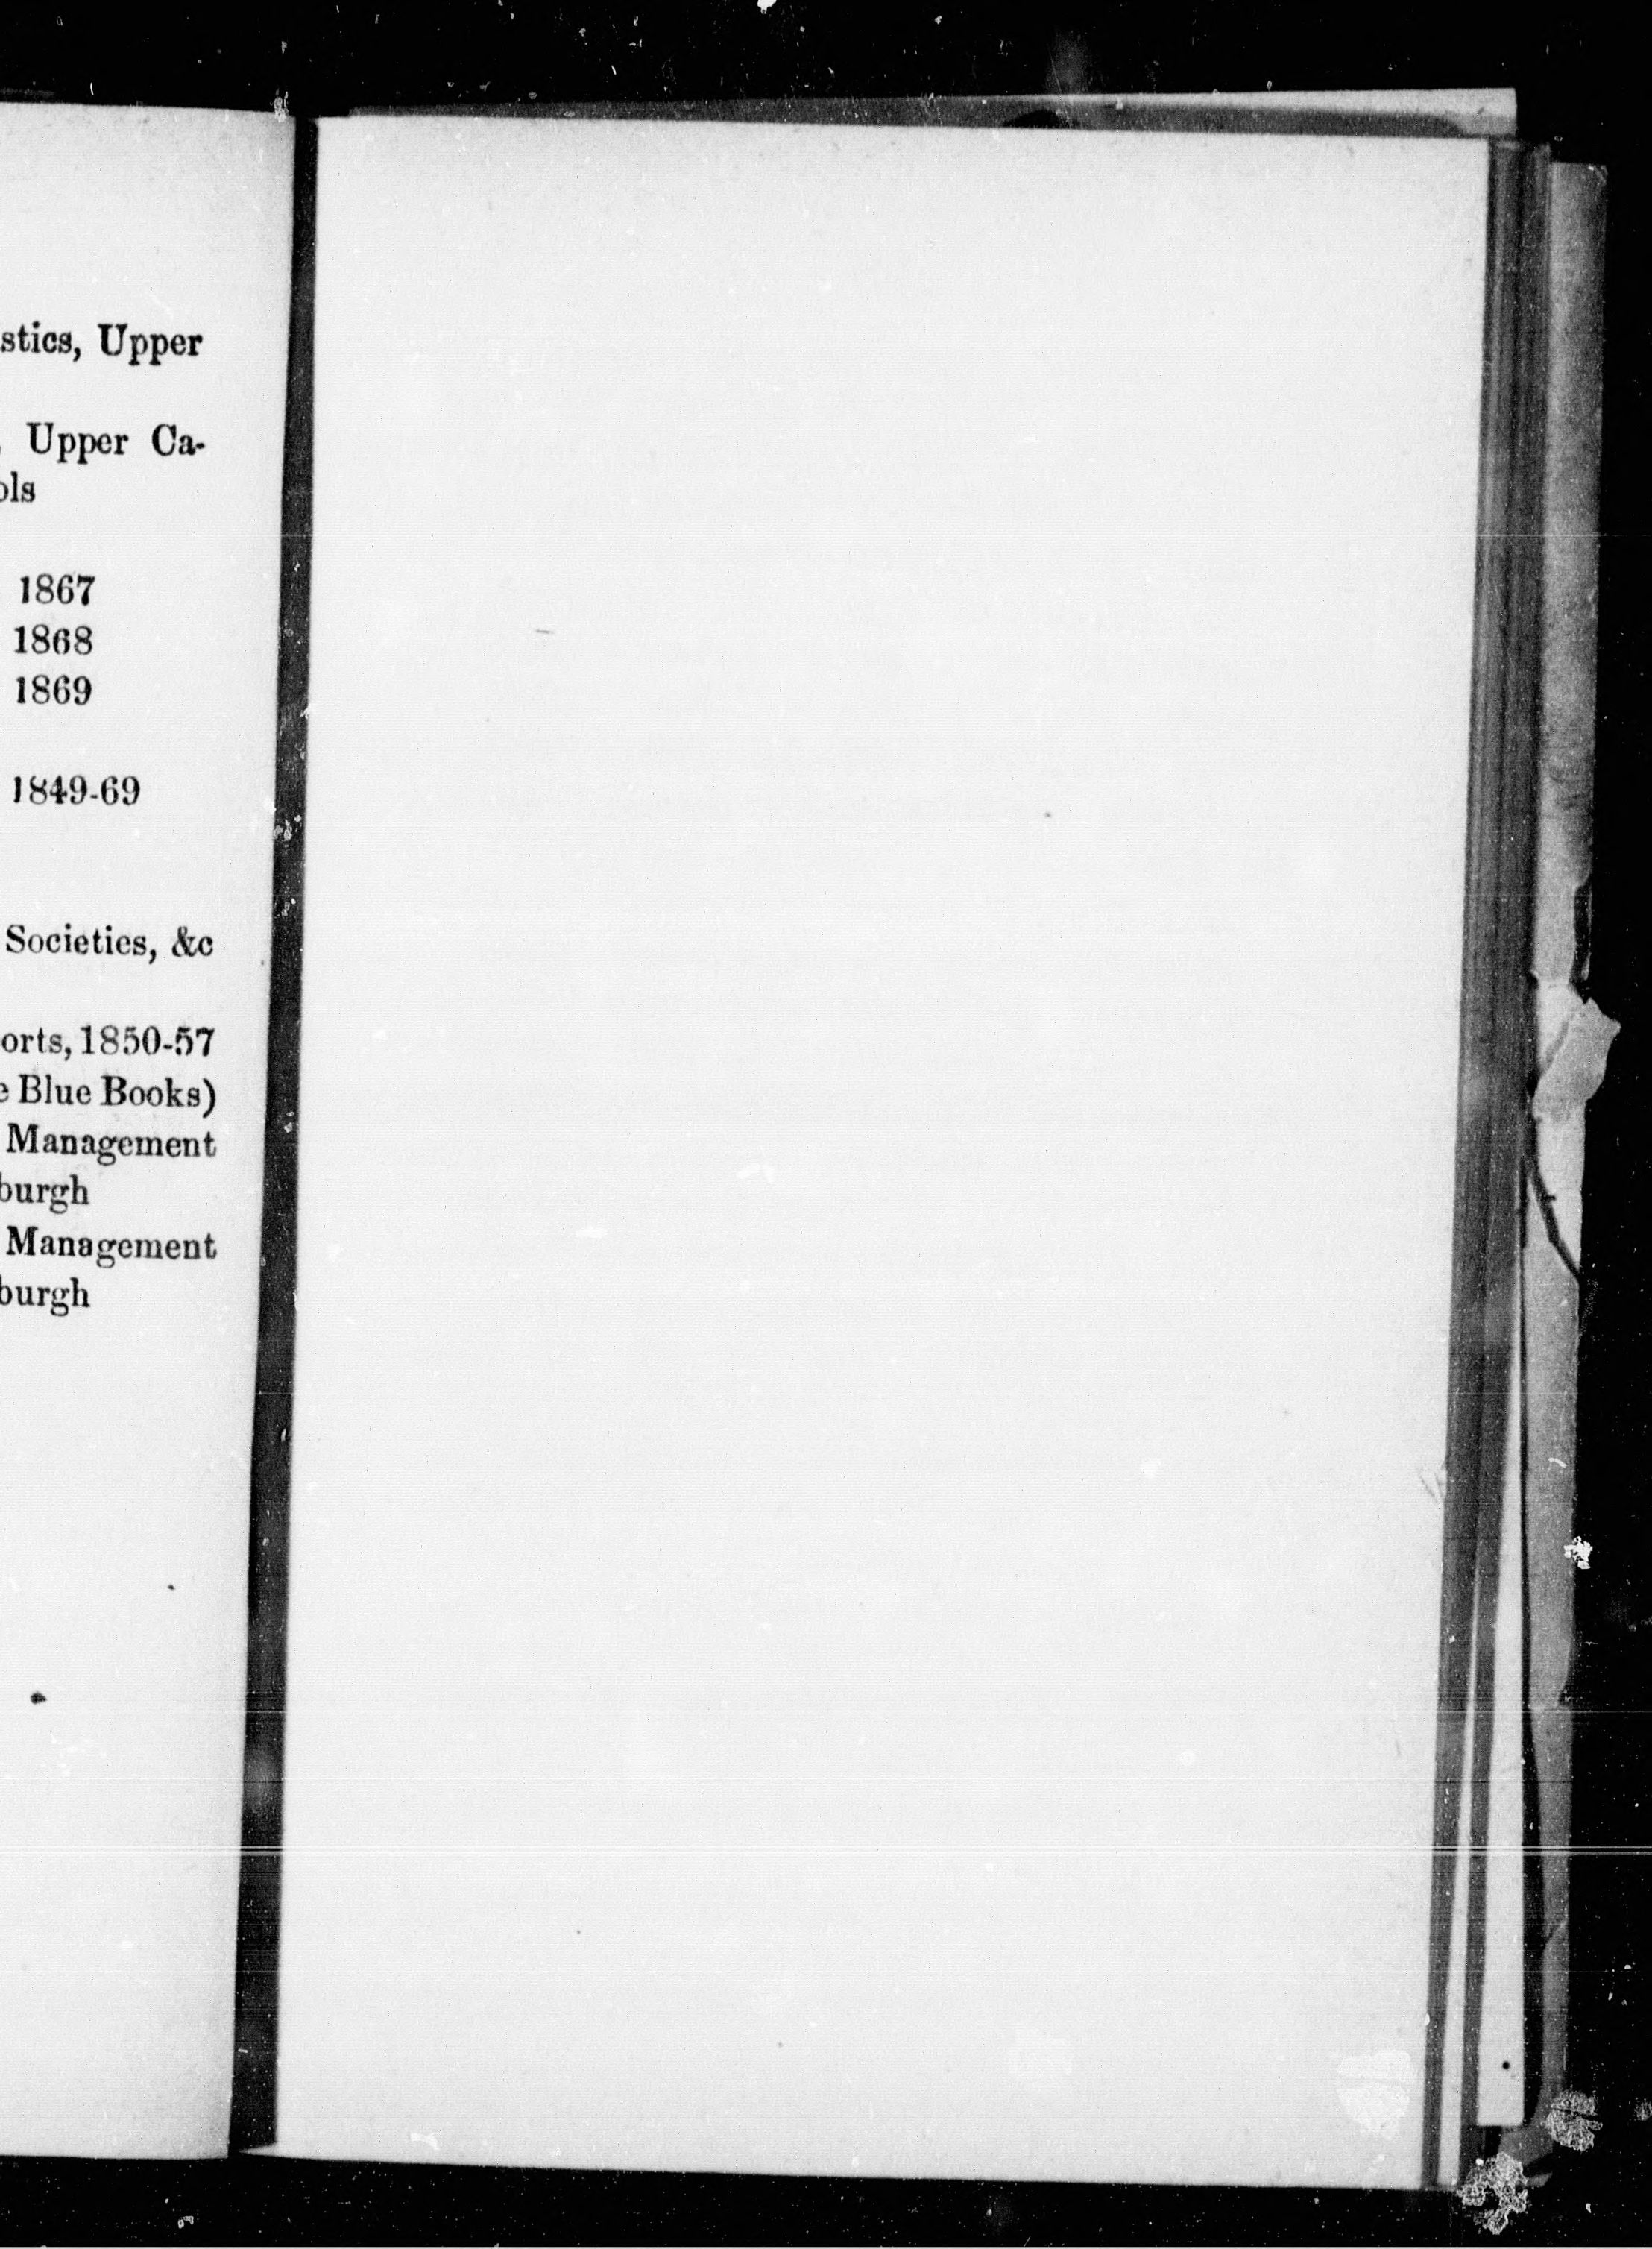 stics, Upper
Upper Ca-
ols
1867
1868
1869
1849-69
Societies, &c
orts, 1850-57
e Blue Books)
Management
burgh
Management
burgh